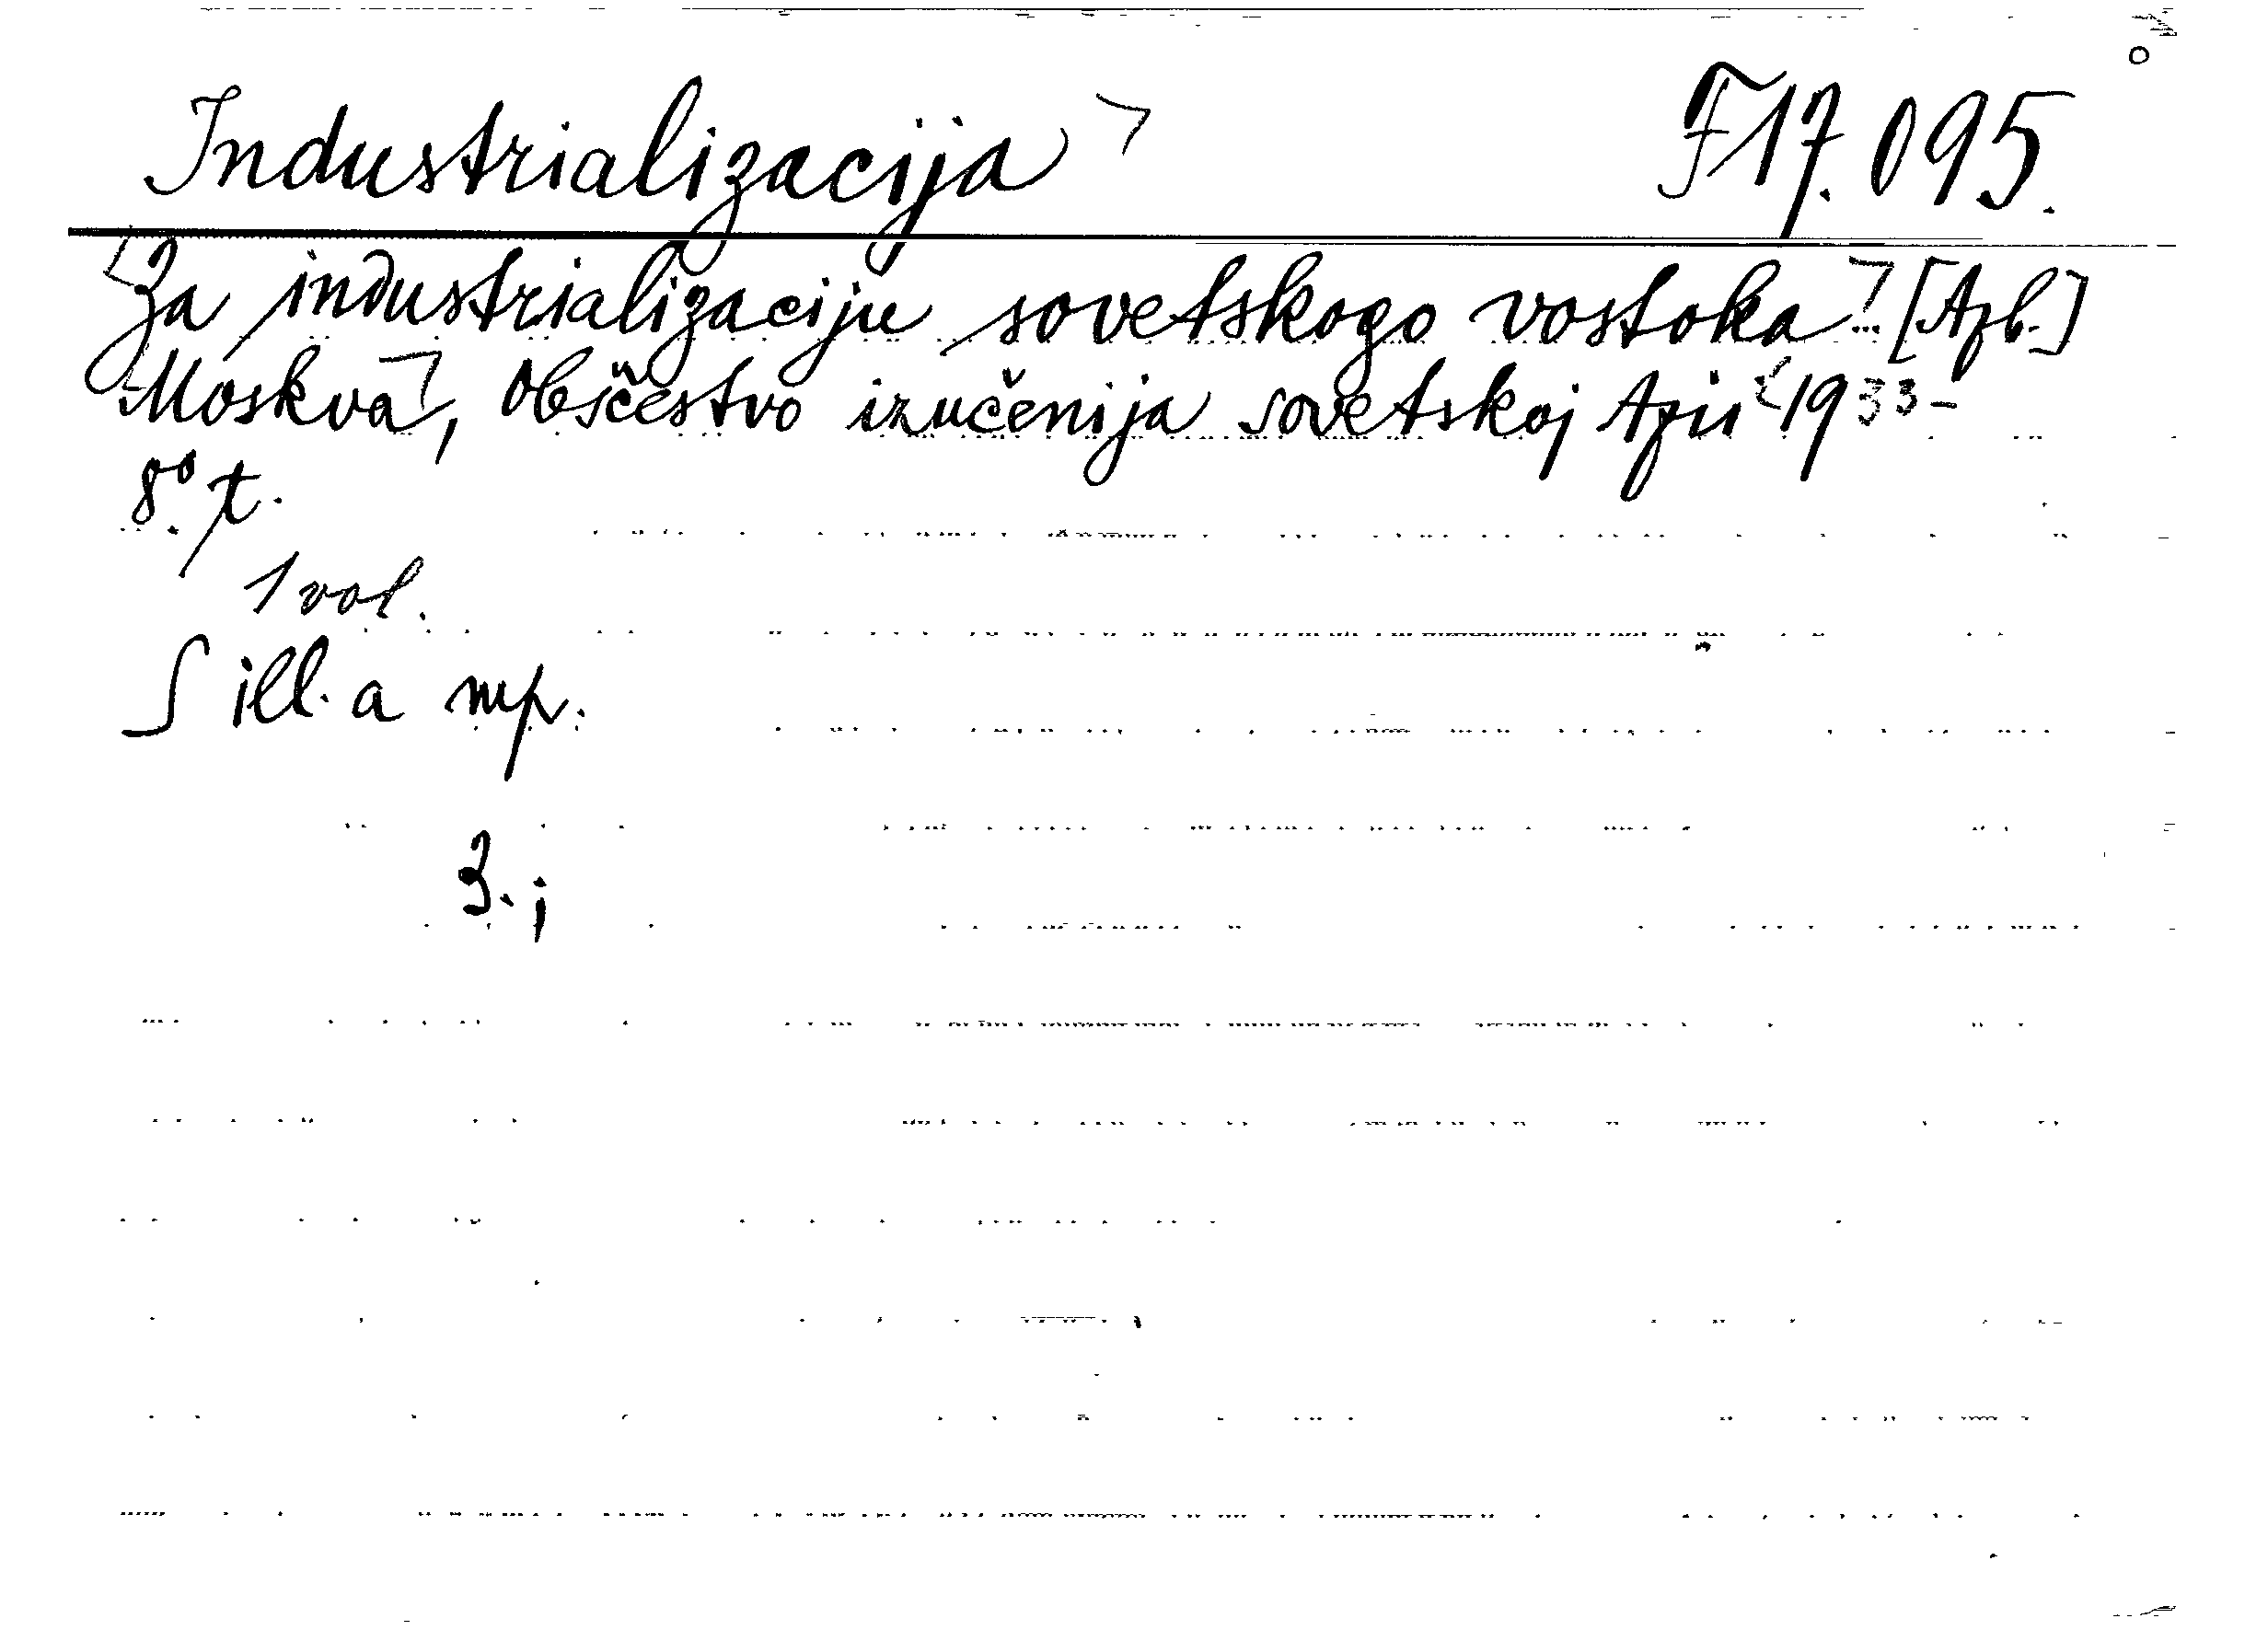 Industrializacija F 17.095.
Za industrializaciju sovetskogo vostoka. [Azb.]
Moskva, Obščestvo izučenija sovetskoj Azii 1933-
8° t.
1 vol.
S ill. a mp.
3.;